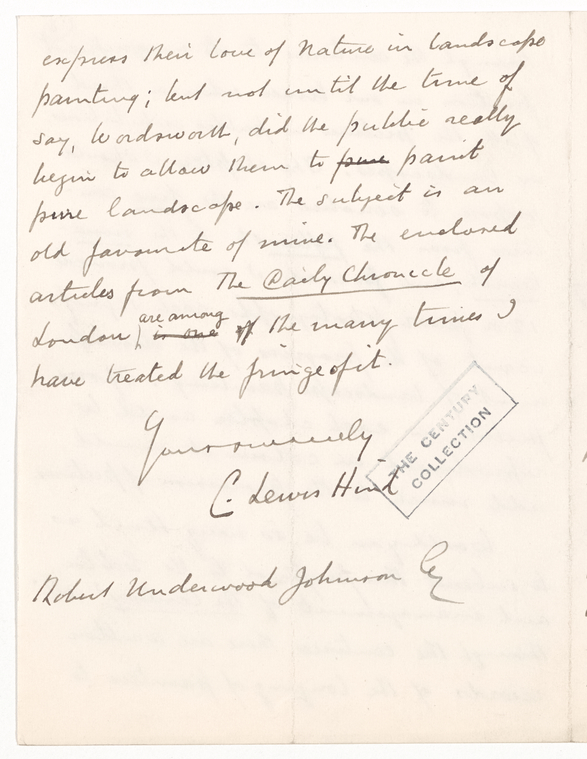 express their love of Nature in landscape
painting; but not until the time of
say, Wordsworth, did the public really
begin to allow them to pure paint
pure landscape. The subject is an
old favourite of mine. The enclosed
articles from The Daily Chronicle of
London, are among
is one of the many times I
have treated the fringe of it.
Yours sincerely
C. Lewis Hind
THE CENTURY
COLLECTION
Robert Underwood Johnson Esq